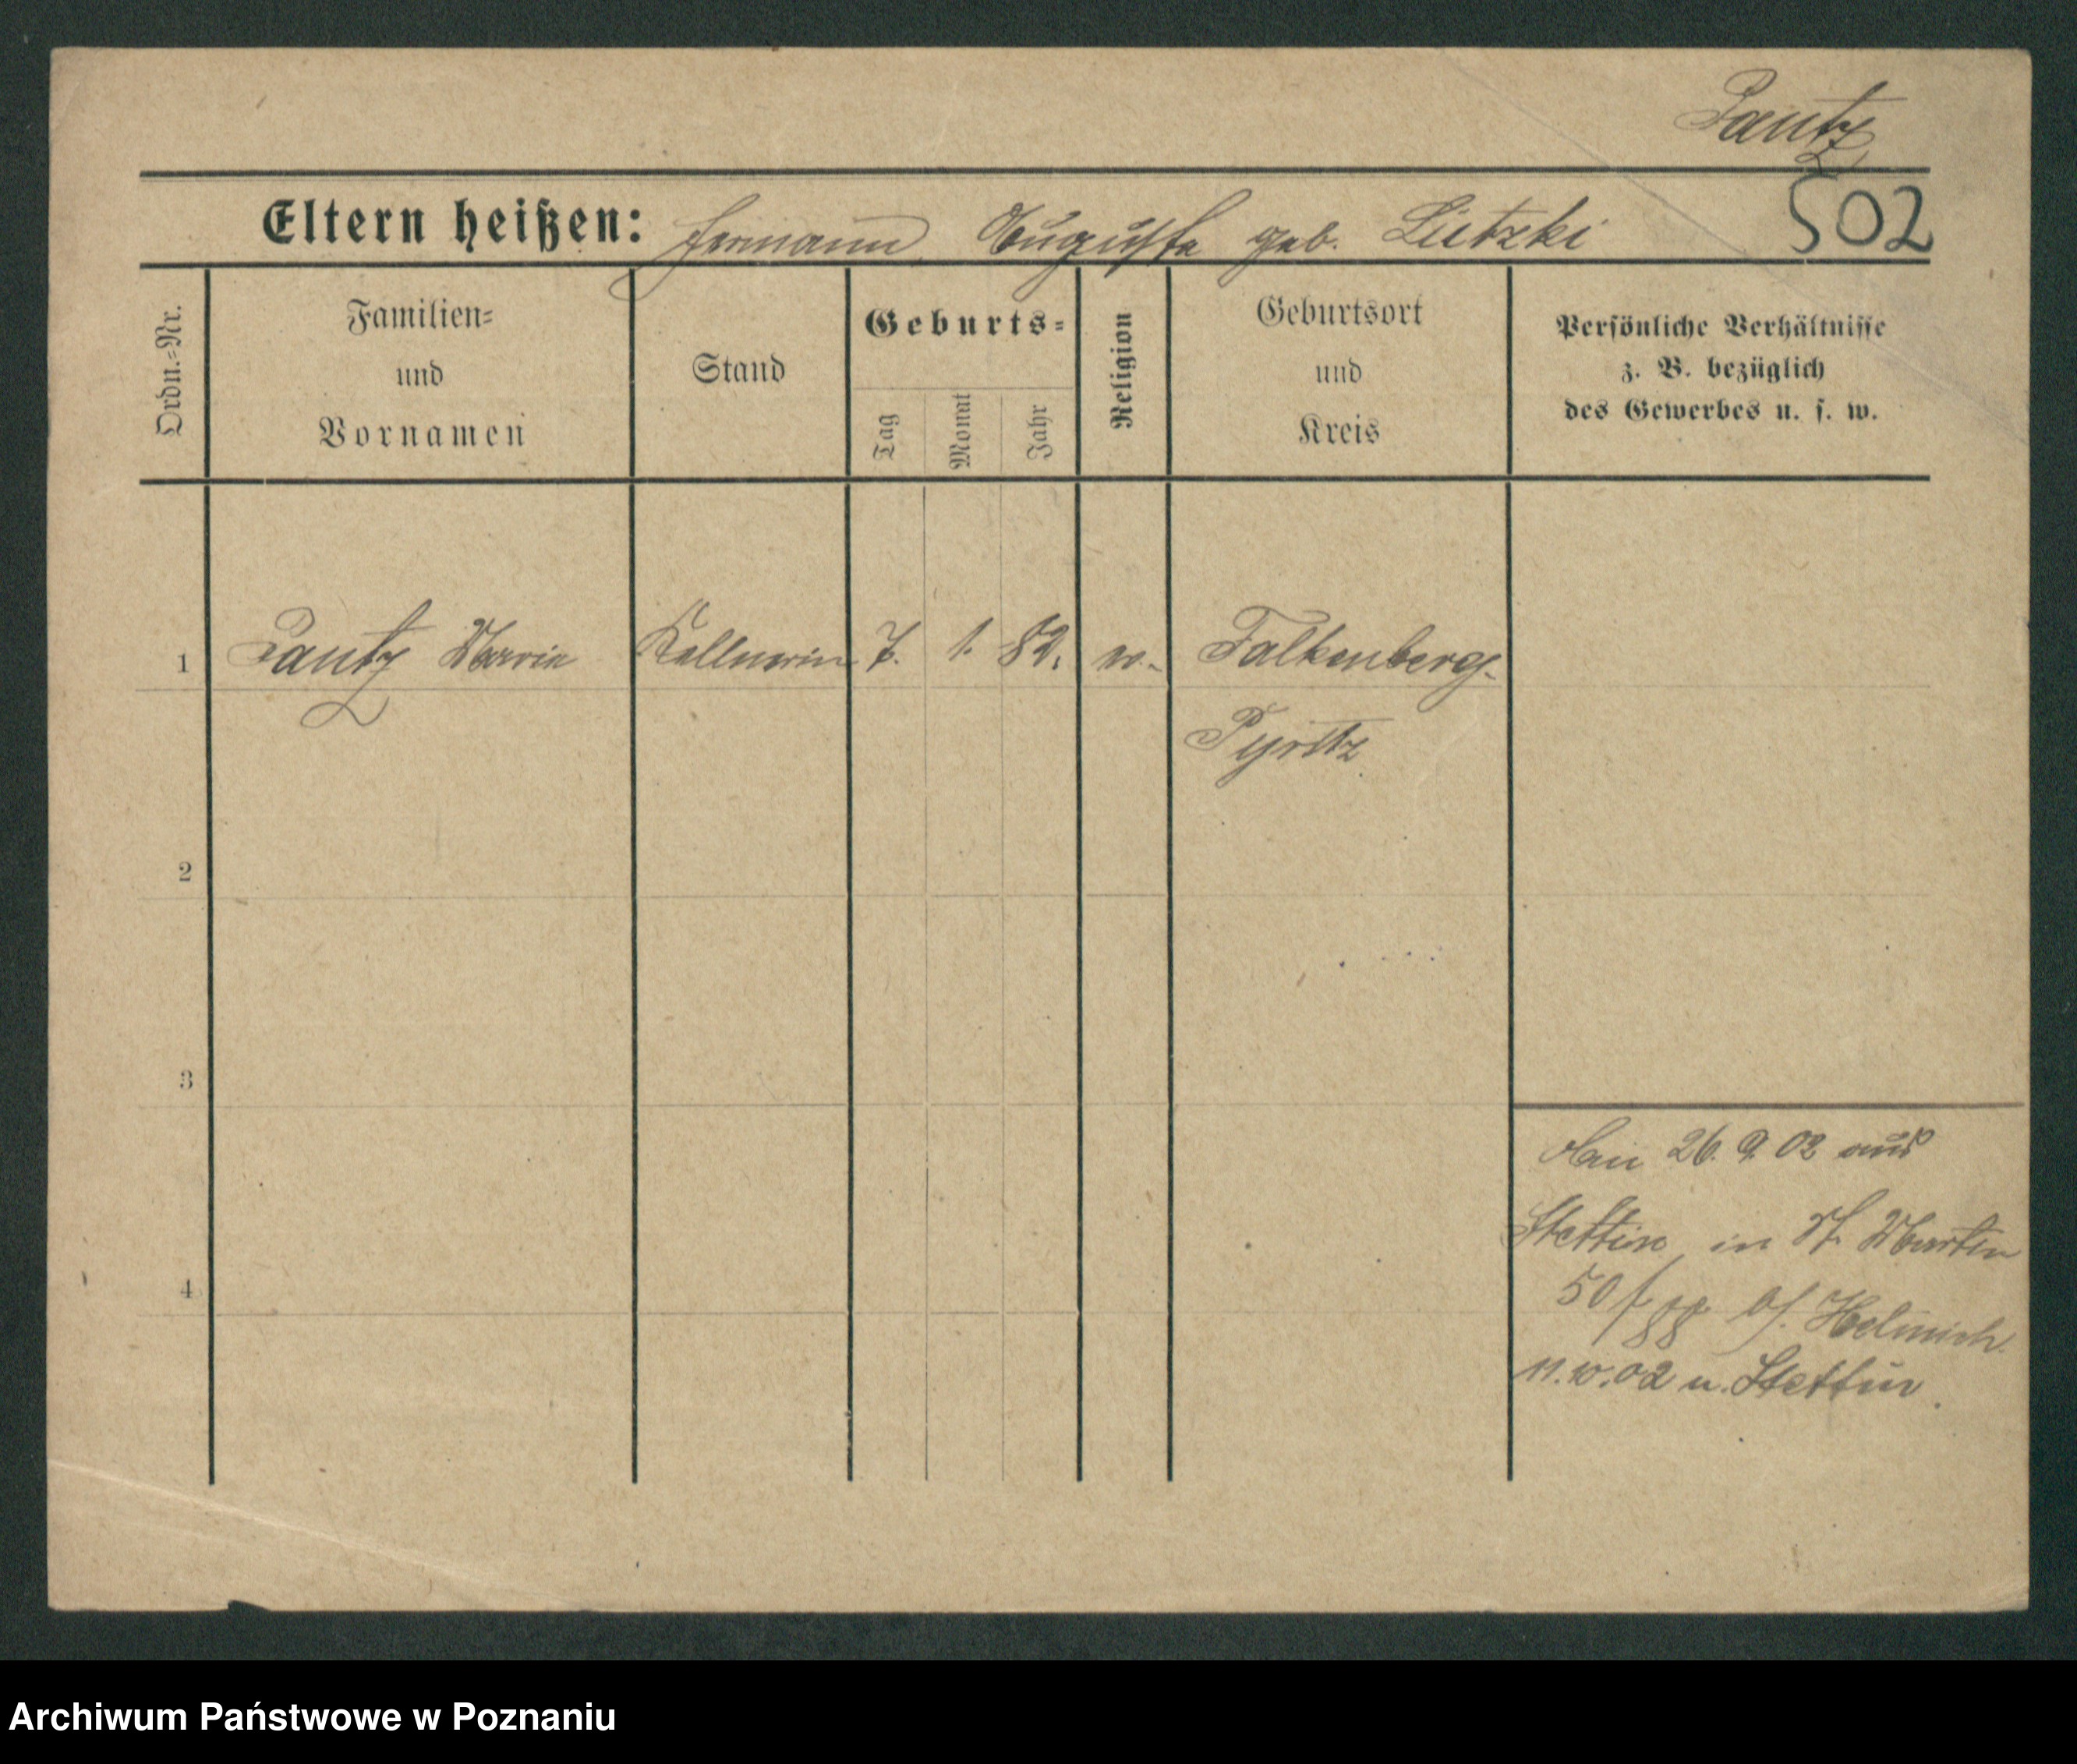 Pautz
502
Eltern heißen: Hermann, Auguste geb. Lützki
Ordn.-Nr.
Familien-
und
Vornamen
Stand
Geburts-
Tag
Monat
Jahr
Religion
Geburtsort
und
Kreis
Persönliche Verhältnisse
z. B. bezüglich
des Gewerbes u. s. w.
1 Pautz Marie Kellnerin 7. 1. 82. ev. Falkenberg.
Pyritz
2
3
4
26. 9. 02 aus
Stettin, in St. Martin
50/ b/. Helmich.
11.10.02 n. Stettin.
Archiwum Państwowe w Poznaniu